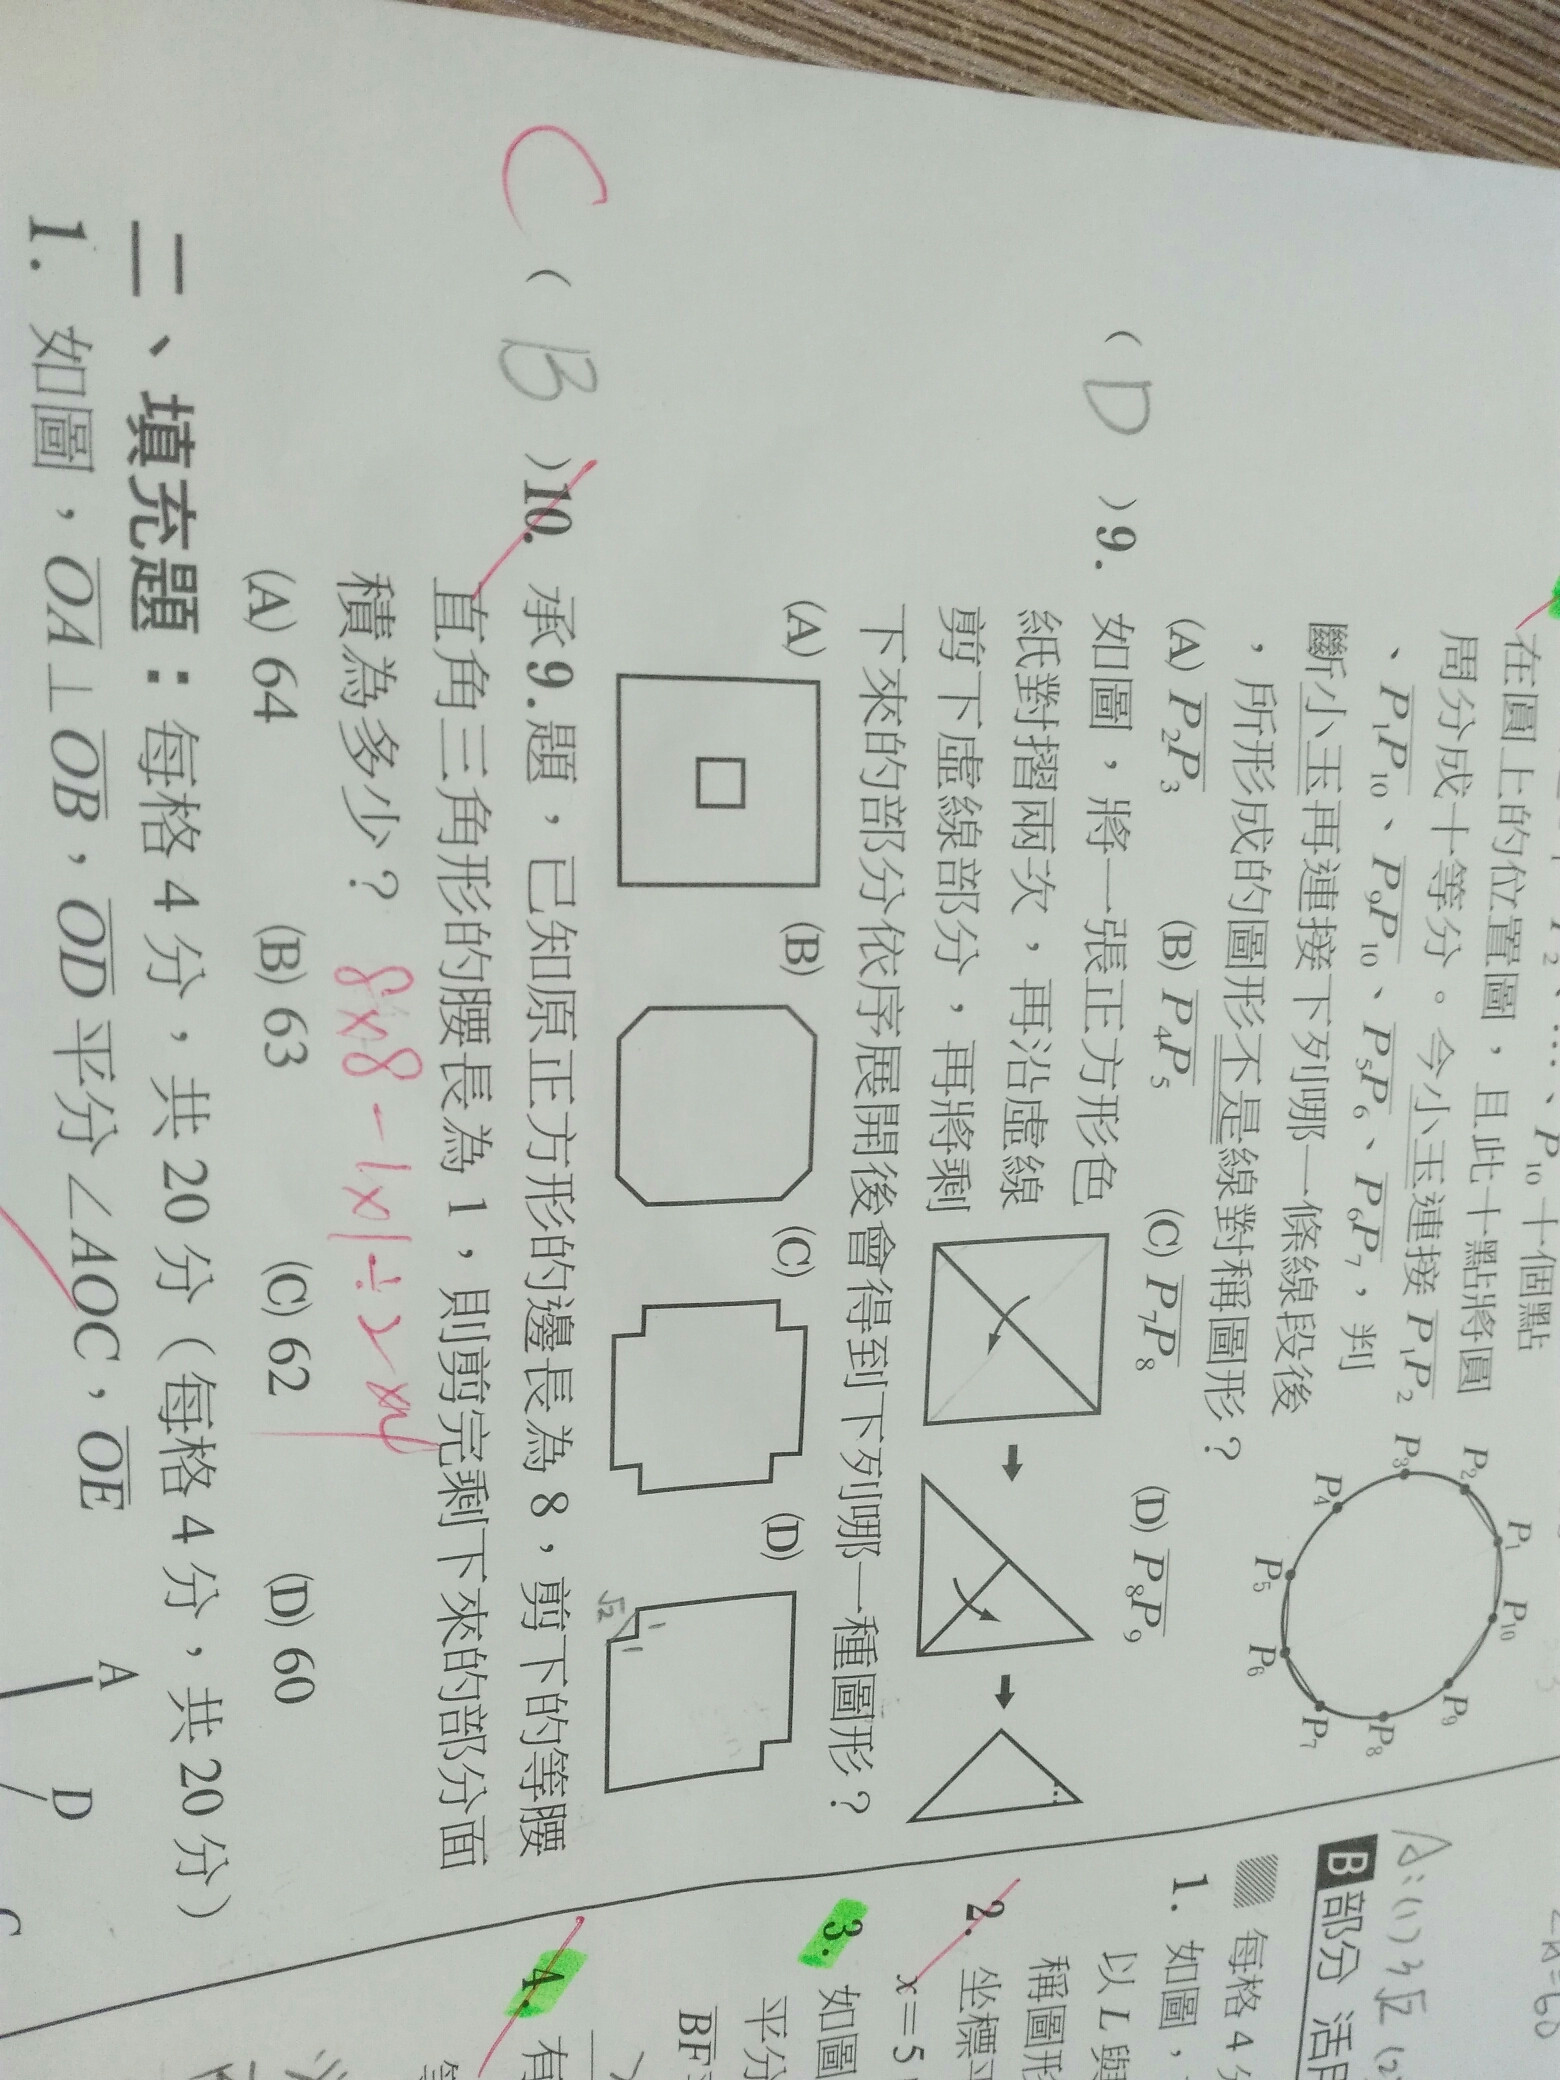 在圓上的位置圖，且此十點將圓
周分成十等分。今小玉連接 P₁P₂
、P₁P₁₀、P₉P₁₀、P₅P₆、P₆P₇，判
斷小玉再連接下列哪一條線段後
，所形成的圖形不是線對稱圖形？
(A) P₂P₃ (B) P₄P₅ (C) P₇P₈ (D) P₈P₉
P₁ P₂ P₃ P₄ P₅ P₆ P₇ P₈ P₉ P₁₀
( D ) 9. 如圖，將一張正方形色
紙對摺兩次，再沿虛線
剪下虛線部分，再將剩
下來的部分依序展開後會得到下列哪一種圖形？
(A) (B) (C) (D)
√2 1 1
C ( B ) 10. 承9.題，已知原正方形的邊長為 8，剪下的等腰
直角三角形的腰長為 1，則剪完剩下來的部分面
積為多少？ 8×8-1×1÷2×4
(A) 64 (B) 63 (C) 62 (D) 60
二、填充題：每格 4 分，共 20 分（每格 4 分，共 20 分）
1. 如圖，OA⊥OB，OD 平分∠AOC，OE
A D
C
B 部分 活
每格 4 分
1. 如圖，
以 L 與
稱圖形
2. 坐標平
x＝5
3. 如圖
平分
BF
4. 有